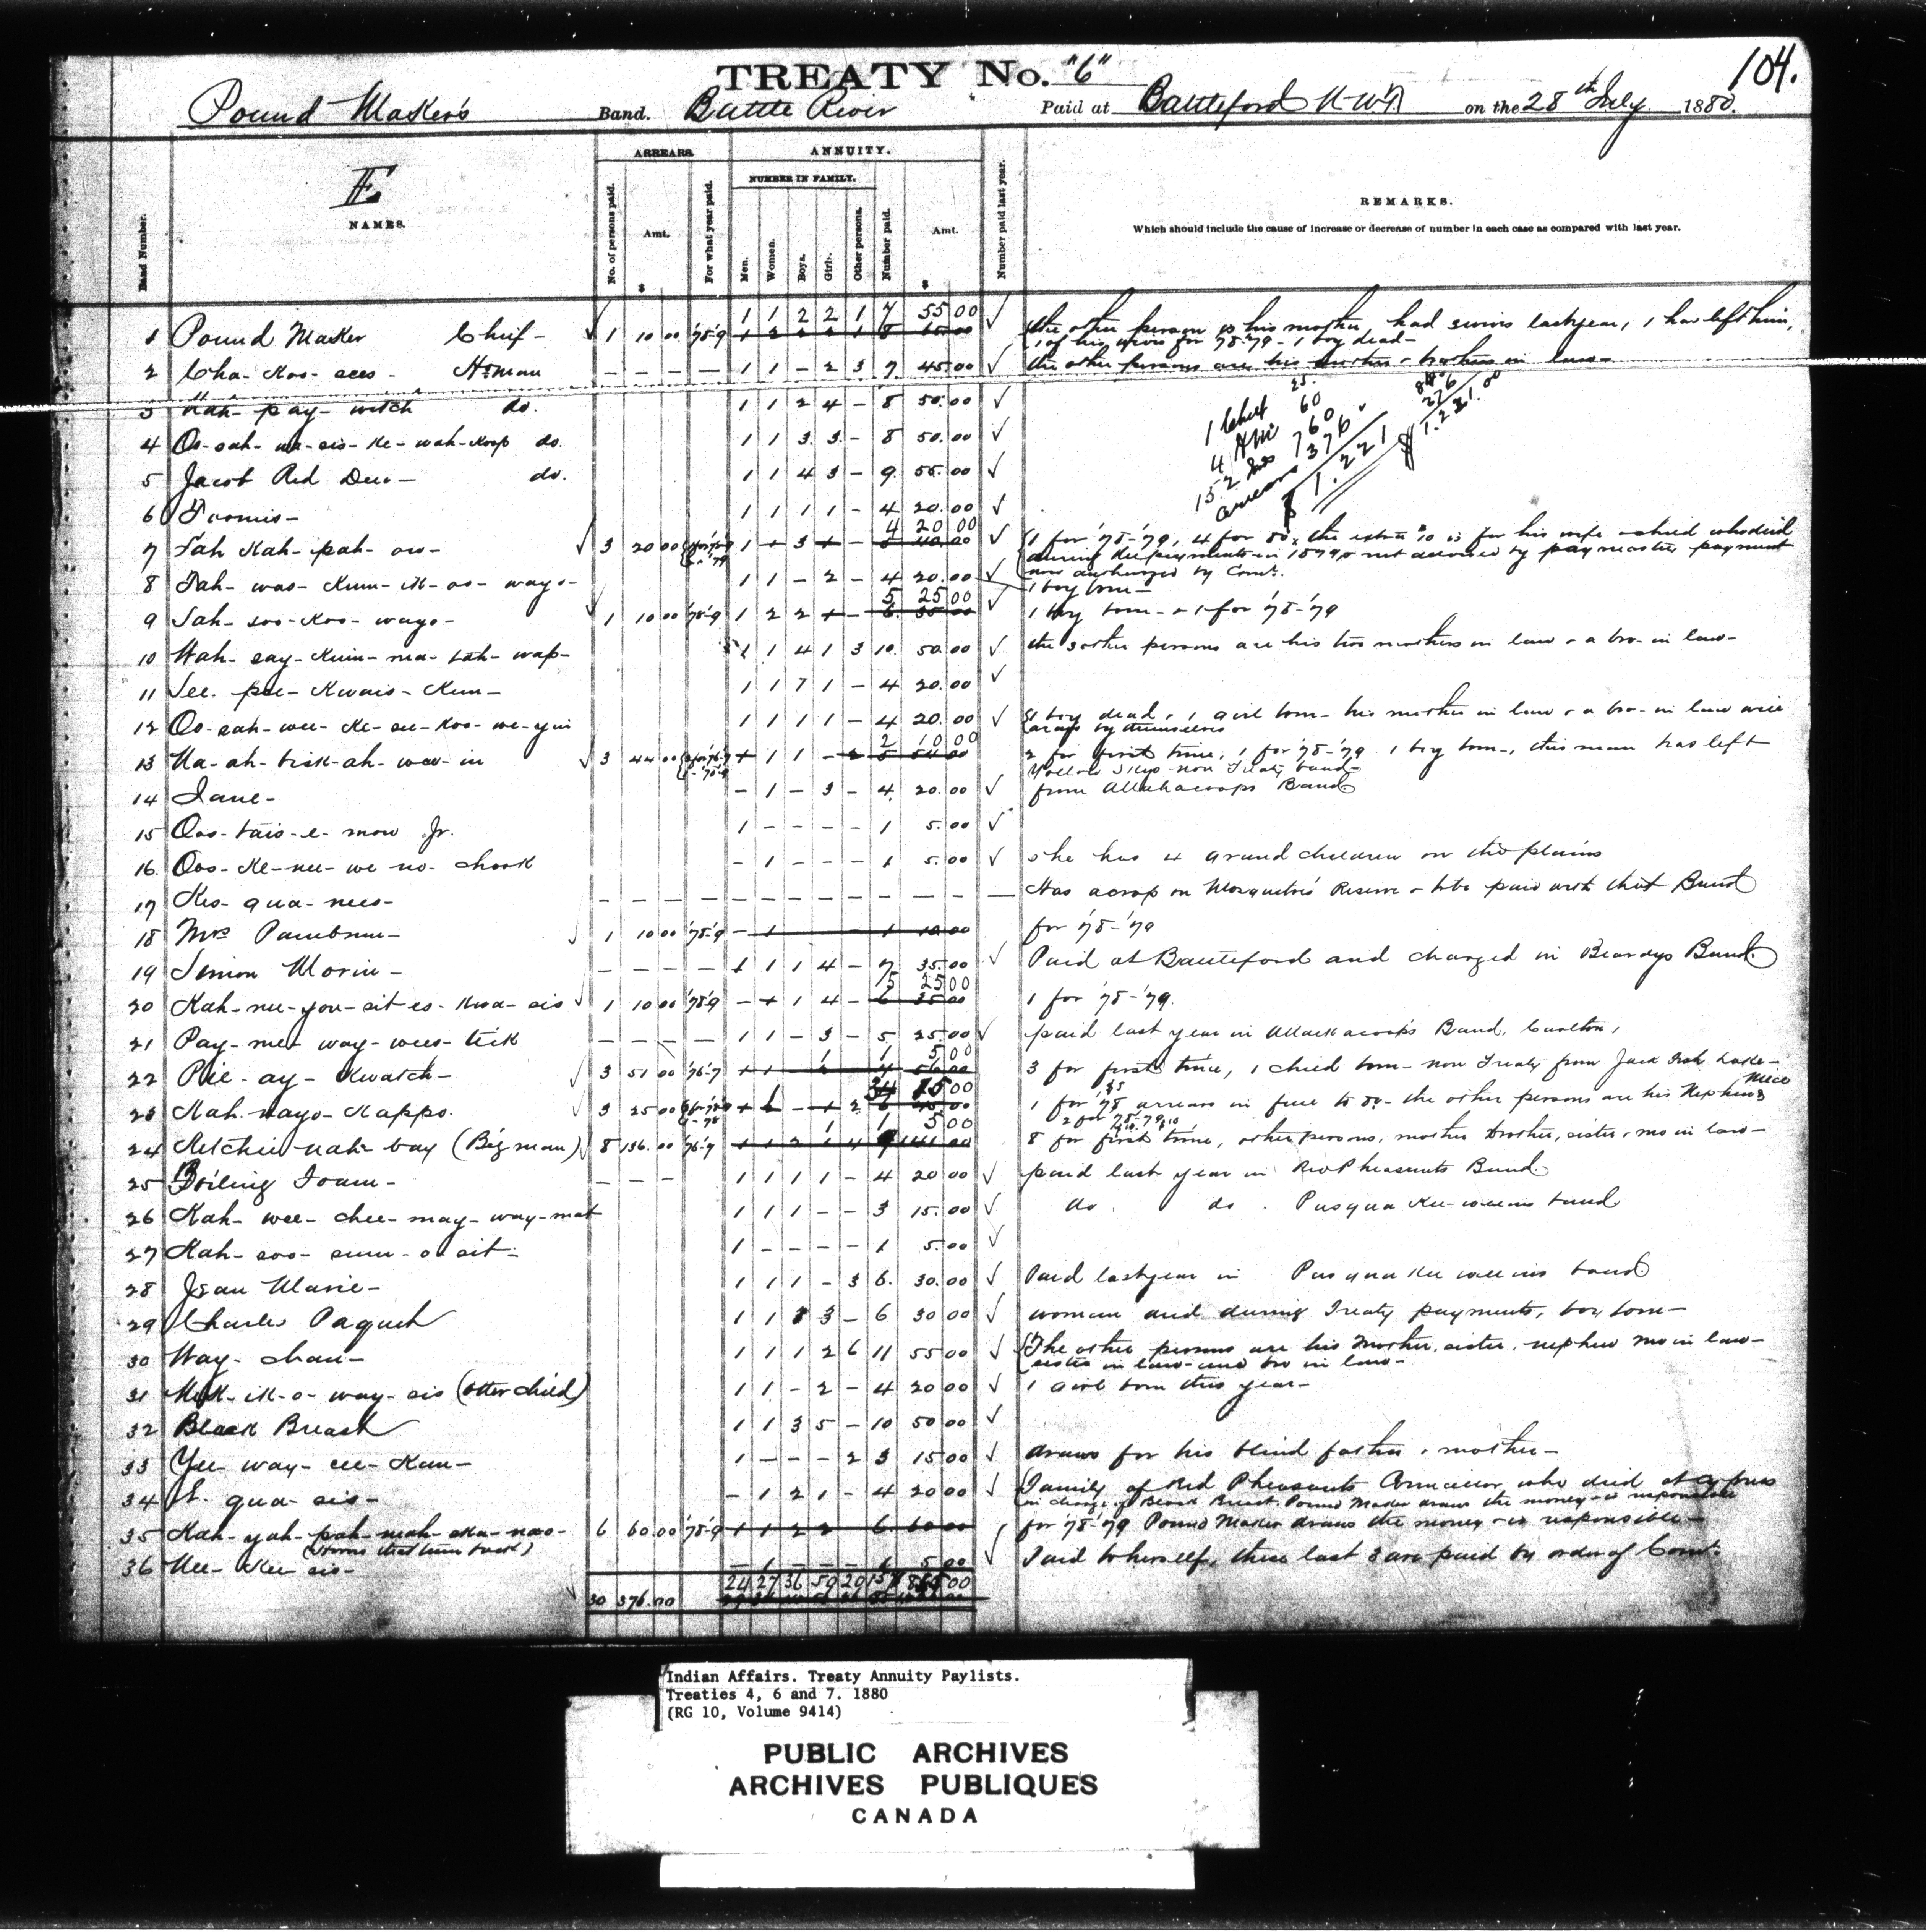 104.
TREATY No. "6"
Pound Maker's Band. Battle River Paid at Battleford N.W.T. on the 28th July 1880.
E
ARREARS. ANNUITY.
NUMBER IN FAMILY.
Band Number. NAMES. No. of persons paid. Amt. For what year paid. Men. Women. Boys. Girls. Other persons. Number paid. Amt. Number paid last year. REMARKS.
Which should include the cause of increase or decrease of number in each case as compared with last year.
$ $
1 1 2 2 1 7 55 00
1 Pound Maker Chief - 1 10 00 '78-9 the other person is his mother, had wives last year, 1 has left him,
1 of his wives for '78-'79 - 1 boy dead -
2 Cha-Koo-sees - Hdman — — — — 1 1 - 2 3 7 45.00 the other persons are his mother & brothers in law -
3 Kah-pay-witch do. 1 1 2 4 - 8 50.00
4 do. 1 1 3 3 - 8 50.00
1 Chief 25
4 60
760
arrears 376
$ 1.221
5 Jacob Red Deer - do. 1 1 4 3 - 9 55.00
6 1 1 1 1 - 4 20.00
4 20 00
7 Tah Kah-pah-ow- 3 20 00 1 for '78-'79, 4 for 80, the extra 10 is for his wife & child who died
during the payments in 1879 & not allowed by paymaster payment
now authorized by Comr.
8 Tah-was-Kum-ik-oo-wayo- 1 1 - 2 - 4 20.00 1 boy born -
5 25 00
9 Sah-soo-Koo-wayo- 1 10 00 '78-9 1 2 2 1 boy born - & 1 for '78-'79
10 Wah-say-Kum-ma-tah-wap- 1 1 4 1 3 10 50.00 the 3 other persons are his two mothers in law & a bro-in law-
11 See-pee-Kwais-Kum- 1 1 1 1 - 4 20.00
12 Oo-sah-wee-Ke-see-Koo-we-yin 1 1 1 1 - 4 20.00 1 boy dead, 1 girl born - his mother in law & a bro-in law are
by themselves
2 10 00
13 Na-ah-tisk-ah-wao-in 3 44 00 2 for first time, 1 for '78-'79 1 boy born-, this man has left
Yellow Skys non Treaty band-
14 Jane- - 1 - 3 - 4 20.00 from Attakacoops Band
15 Oos-tais-e-mow Jr. 1 - - - - 1 5.00
16 Oos-Ke-nee-we no-chook - 1 - - - 1 5.00 she has 4 grand children on the plains
17 Kis-qua-nees- — — — — — — — — — — — — Has a crop on Mosquitos' Reserve & to be paid with that Band
18 Mrs Pambrun- 1 10 00 '78-9 - 1 1 10 00 for '78-'79
19 Simon Morin- — — — — 1 1 1 4 - 7 35.00 Paid at Battleford and charged in Beardys Band.
5 25 00
20 Kah-nee-you-sit-es-Kwa-sis 1 10 00 '78-9 - 1 1 4 - 6 35 00 1 for '78-'79.
21 Pay-me-way-wees-tick — — — — 1 1 - 3 - 5 25.00 paid last year in Attackacoop's Band, Carlton,
1 1 5 00
22 Pie-ay-Kwatch- 3 51 00 '76-7 3 for first time, 1 child born - non Treaty from Jack Fish Lake-
15 00
23 Kah-nayo-Kappo. 3 25 00 1 for '78 arrears in full to 80 - the other persons are his Nephew & Niece
2 for '78-79
1 1 5 00
24 Kitchie-nah-bay (Big man) 8 136.00 '76-7 8 for first time, other persons, mother brother, sister, mo in law-
25 Boiling Foam- — — — 1 1 1 1 - 4 20 00 paid last year in Red Pheasants Band.
26 Kah-wee-chee-may-way-mat 1 1 1 - - 3 15.00 do. do.
27 Kah-soo-sum-o-sit- 1 - - - - 1 5.00
28 Jean Marie- 1 1 1 - 3 6. 30.00 Paid last year in
29 Charles Paquet 1 1 3 - 6 30 00 woman died during Treaty payments, boy born-
30 Way-chan- 1 1 1 2 6 11 55 00 The other persons are his Mother, sister, nephew mo in law-
sister in law and bro in law-
31 Muk-ik-o-way-sis (otter child) 1 1 - 2 - 4 20 00 1 girl born this year-
32 Black Breast 1 1 3 5 - 10 50 00
33 Yee-way-cee-Kan- 1 - - - 2 3 15 00 draws for his blind father & mother-
34 qua-sis- - 1 2 1 - 4 20 00 Family of Red Pheasants Councillor who died at Cypress
in charge of Black Breast, Pound Maker draws the money & is responsible
35 Kah-yah-pah-mah-cka-nao- 6 60.00 '78-9 1 1 2 2 6 60 00 for '78-'79 Pound Maker draws the money & is responsible-
36 Nee-Kee-sis- - 1 - - - 1 5 00 Paid to herself, these last 3 are paid by order of Comr.
24 27 36 50 20 157
30 376.00
Indian Affairs. Treaty Annuity Paylists.
Treaties 4, 6 and 7. 1880
(RG 10, Volume 9414)
PUBLIC ARCHIVES
ARCHIVES PUBLIQUES
CANADA